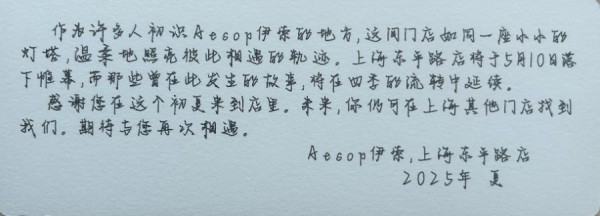 作为许多人初识Aesop伊索的地方，这间门店如同一座小小的
灯塔，温柔地照亮彼此相遇的轨迹。上海东平路店将于5月10日落
下帷幕，而那些曾在此发生的故事，将在四季的流转中延续。
感谢您在这个初夏来到店里。未来，你仍可在上海其他门店找到
我们。期待与您再次相遇。
Aesop伊索，上海东平路店
2025年 夏